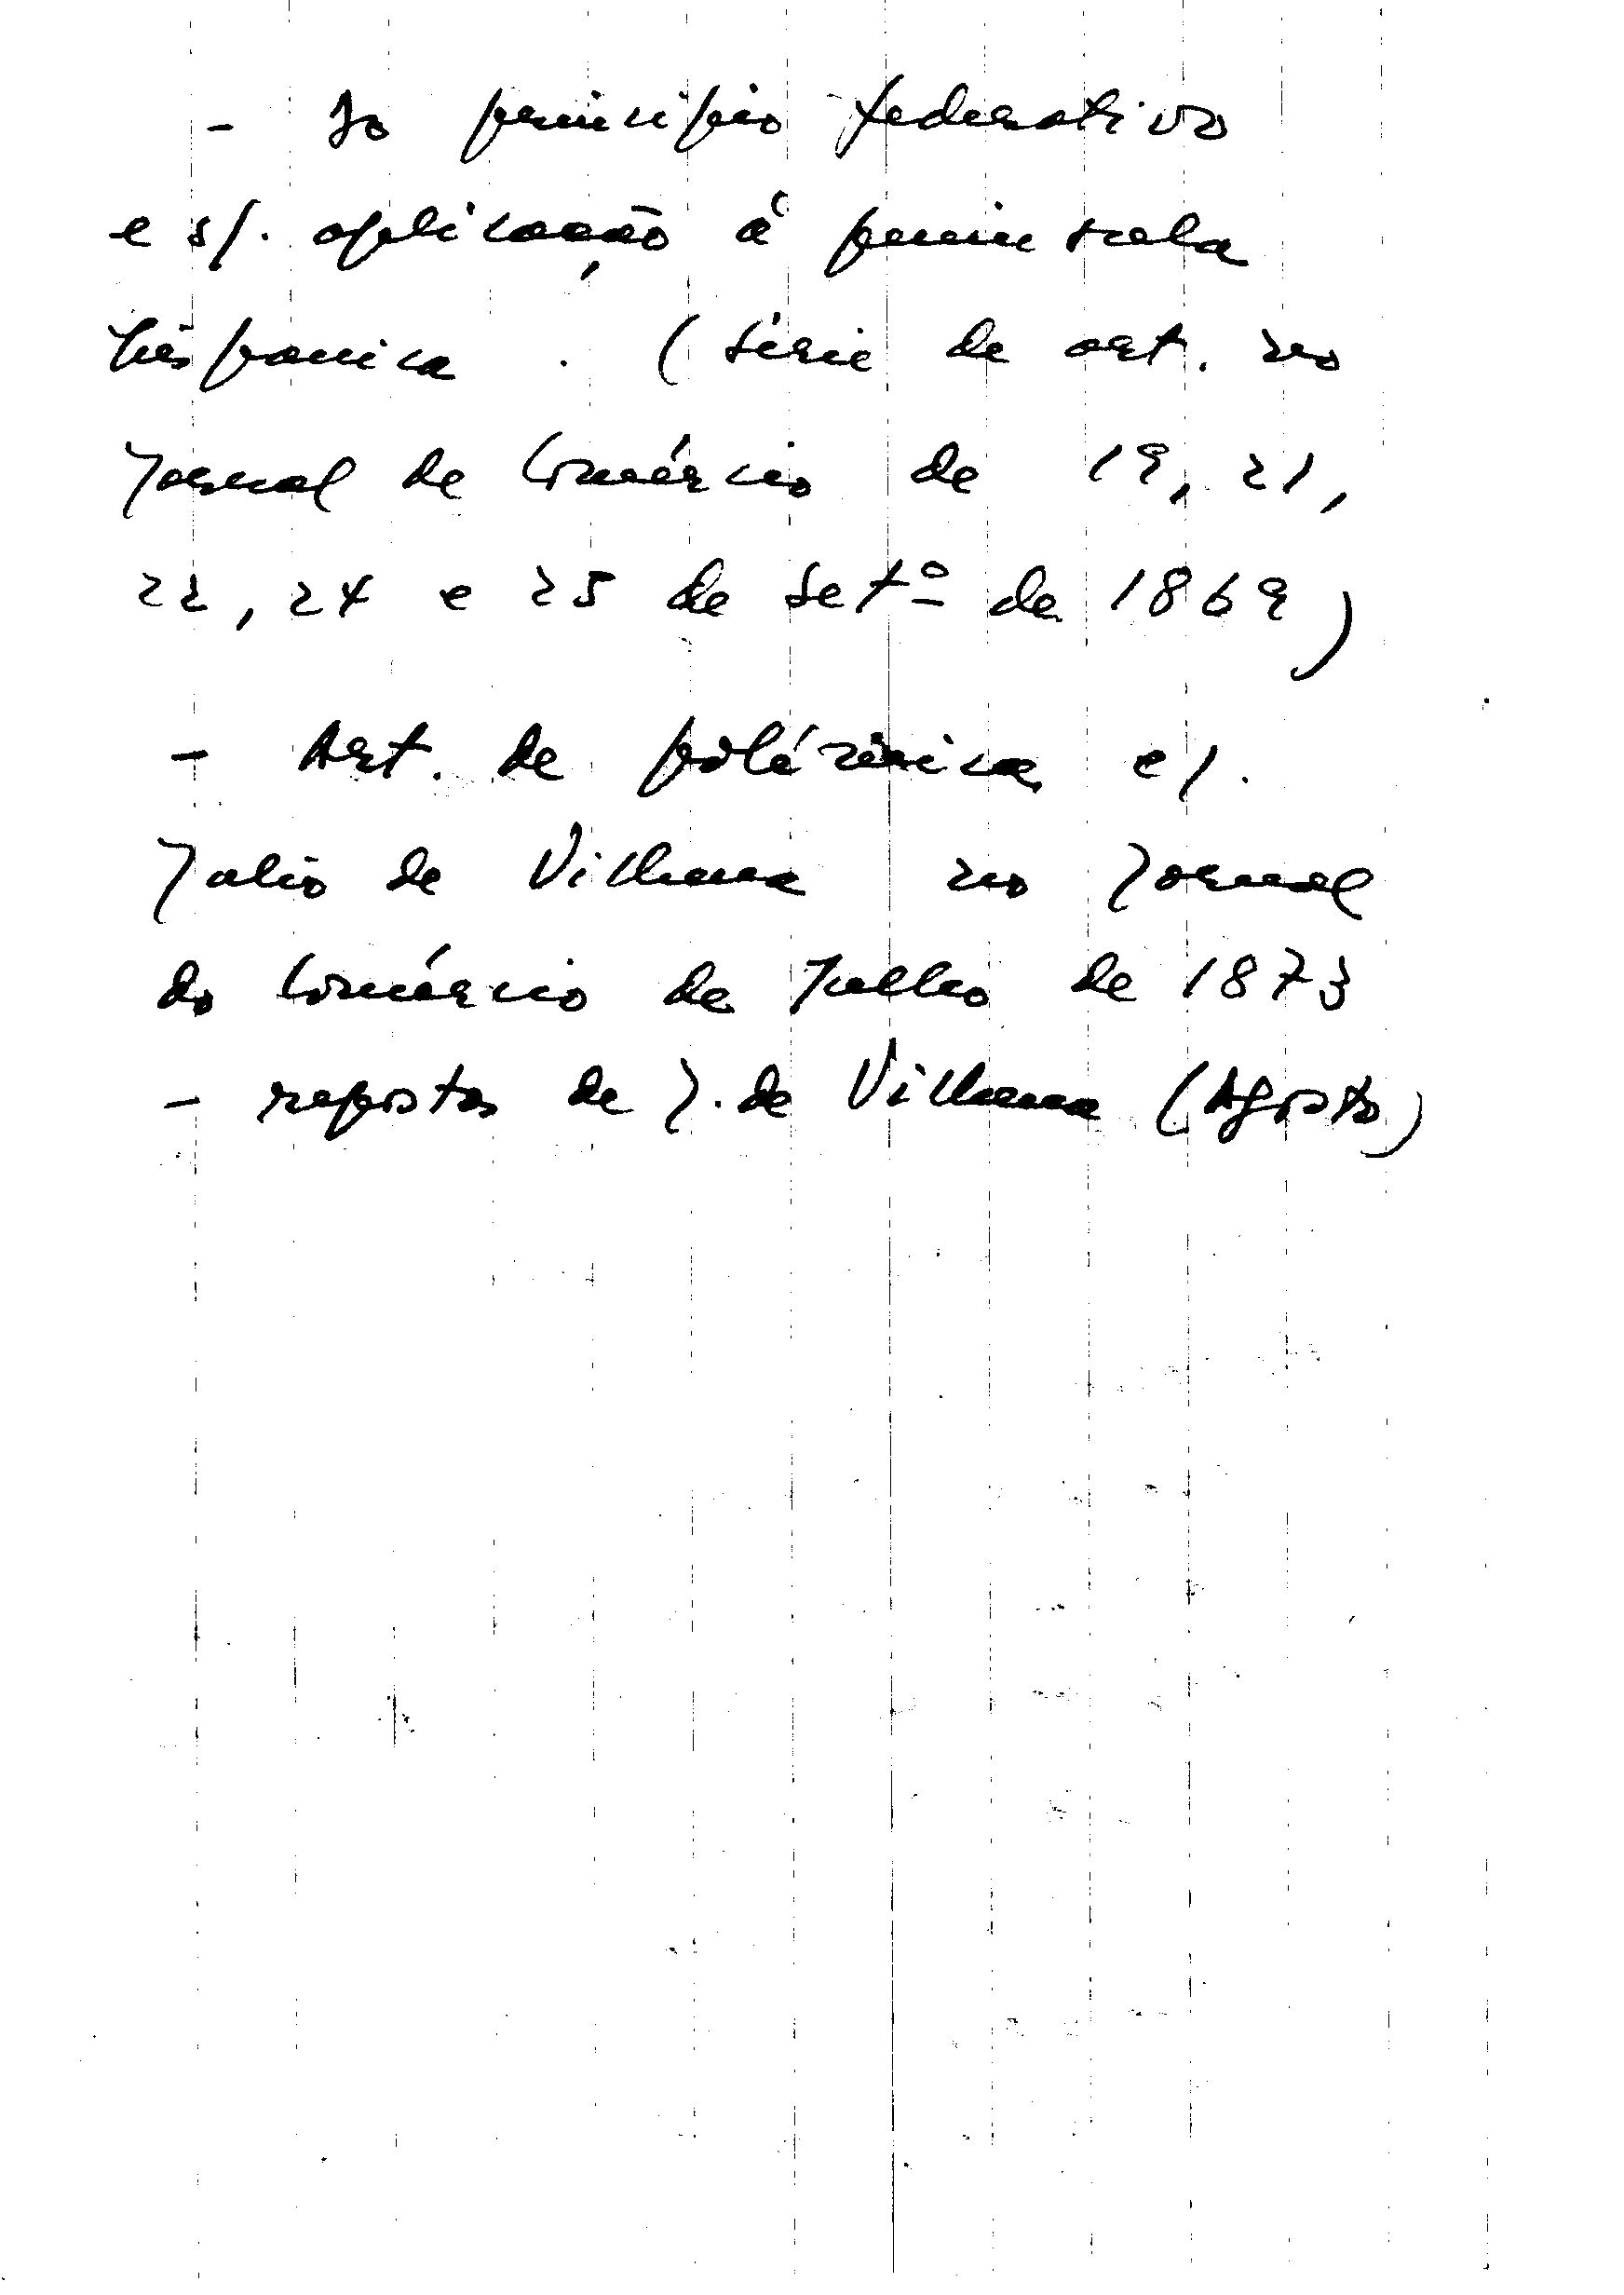 - Do principio federativo
e s/. aplicação à peninsula
hispanica. (série de art. no
Jornal de Comércio de 19, 21,
22, 24 e 25 de Setº de 1869)
- Art. de polémica c/.
Julio de Vilhena no Jornal
do Comércio de Julho de 1873
- repostas de J. de Vilhena (Agosto)